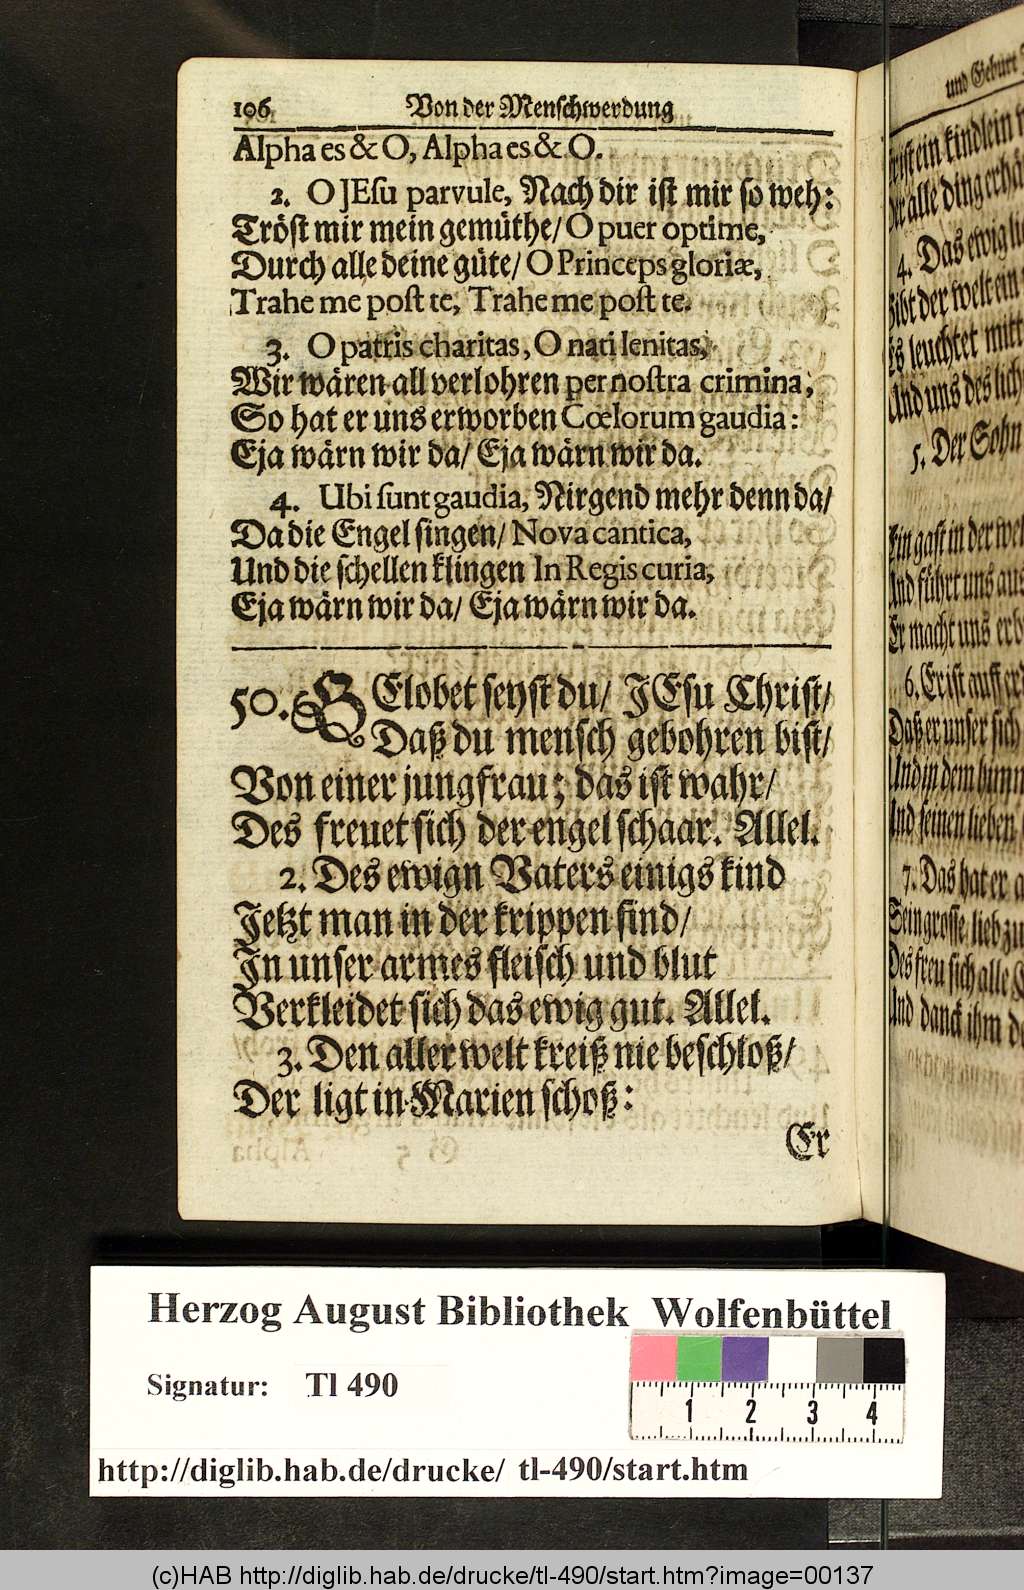 106 Von der Menschwerdung
Alpha es & O, Alpha es & O.
2. O JEsu parvule, Nach dir ist mir so weh:
Tröst mir mein gemüthe/ O puer optime,
Durch alle deine güte/ O Princeps gloriæ,
Trahe me post te, Trahe me post te.
3. O patris charitas, O nati lenitas,
Wir wären all verlohren per nostra crimina,
So hat er uns erworben Cœlorum gaudia:
Eja wärn wir da/ Eja wärn wir da.
4. Ubi sunt gaudia, Nirgend mehr denn da/
Da die Engel singen/ Nova cantica,
Und die schellen klingen In Regis curia,
Eja wärn wir da/ Eja wärn wir da.
50. GElobet seyst du/ JEsu Christ/
Daß du mensch gebohren bist/
Von einer jungfrau; das ist wahr/
Des freuet sich der engel schaar. Allel.
2. Des ewign Vaters einigs kind
Jetzt man in der krippen find/
In unser armes fleisch und blut
Verkleidet sich das ewig gut. Allel.
3. Den aller welt kreiß nie beschloß/
Der ligt in Marien schoß:
Er
und Geburt
ist ein kindlein
alle ding erhä
4. Das ewig li
Gibt der welt ein
Es leuchtet mitt
Und uns des lich
5. Der Sohn
Ein gast in der wel
Und führt uns aus
Er macht uns erb
6. Er ist auff erd
Daß er unser sich
Und in dem himm
Und seinen lieben
7. Das hat er a
Sein grosse lieb zu
Des freu sich alle C
Und danck ihm de
Herzog August Bibliothek Wolfenbüttel
Signatur: Tl 490
1 2 3 4
http://diglib.hab.de/drucke/ tl-490/start.htm
(c)HAB http://diglib.hab.de/drucke/tl-490/start.htm?image=00137